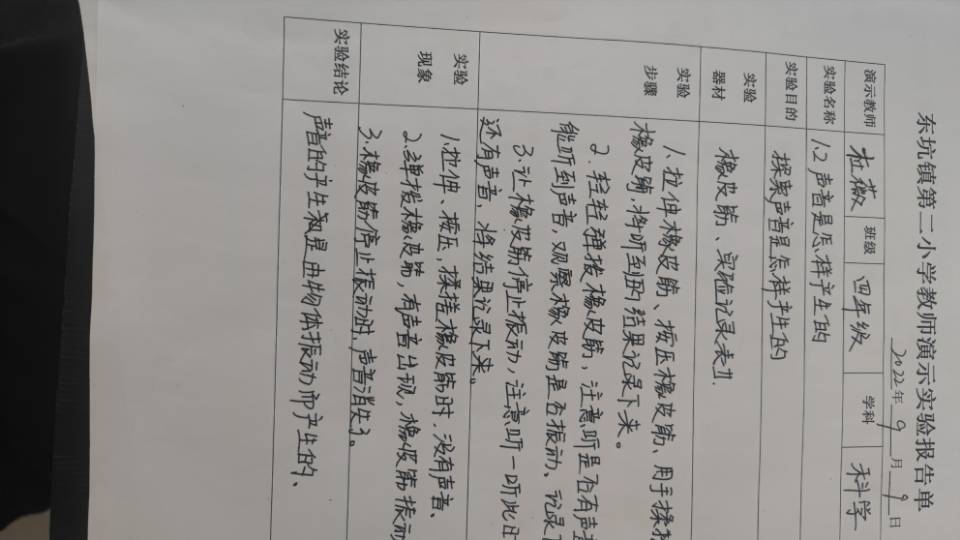 东坑镇第二小学教师演示实验报告单
2022年 9 月 9 日
演示教师 杜薇 班级 四年级 学科 科学
实验名称 1.2声音是怎样产生的
实验目的 探索声音是怎样产生的
实验器材 橡皮筋、实验记录表
实验步骤 1.拉伸橡皮筋、按压橡皮筋、用手揉
橡皮筋,将听到的结果记录下来。
2.轻轻弹拨橡皮筋,注意听是否有声
能听到声音,观察橡皮筋是否振动、记录
3.让橡皮筋停止振动,注意听一听此
还有声音,将结果记录下来。
实验现象 1.拉伸、按压,揉搓橡皮筋时,没有声音、
2.弹拨橡皮筋,有声音出现,橡皮筋振动
3.橡皮筋停止振动时,声音消失了。
实验结论 声音的产生是由物体振动而产生的、